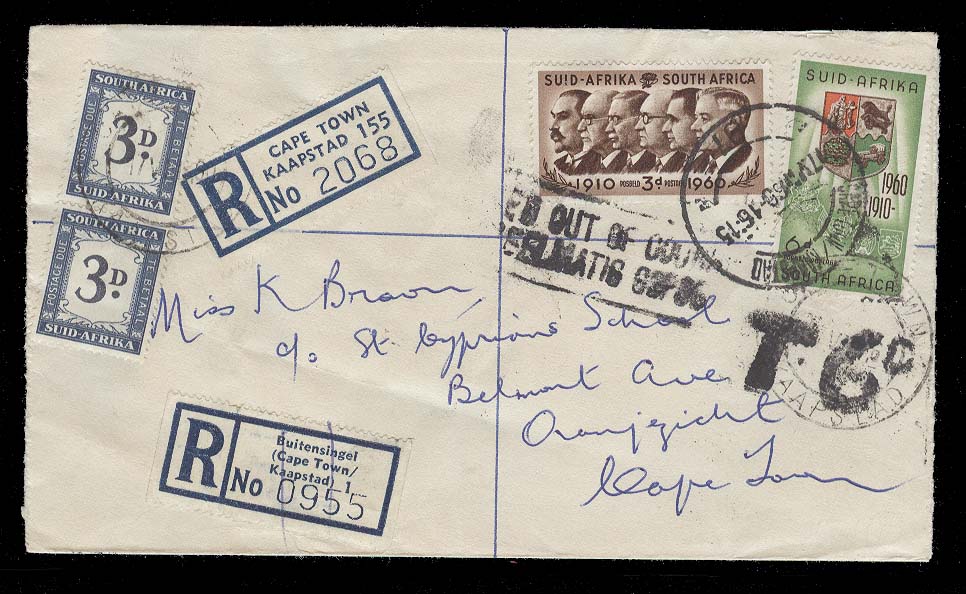 SOUTH AFRICA
POSTAGE DUE
TE BETAAL
3D.
SUID-AFRIKA
SOUTH AFRICA
POSTAGE DUE
TE BETAAL
3D.
SUID-AFRIKA
R
CAPE TOWN
KAAPSTAD 155
No 2068
SUID-AFRIKA SOUTH AFRICA
1910 POSBELD 3d POSTAGE 1960
SUID-AFRIKA
1960
1910-
SOUTH AFRICA
16-15
ED OUT OF COU
T 6D
KAAPSTAD
Miss K Brown,
c/o St. Cyprians School
Belmont Ave
Oranjezicht
Cape Town
R
Buitensingel
(Cape Town/
Kaapstad) 1
No 0955